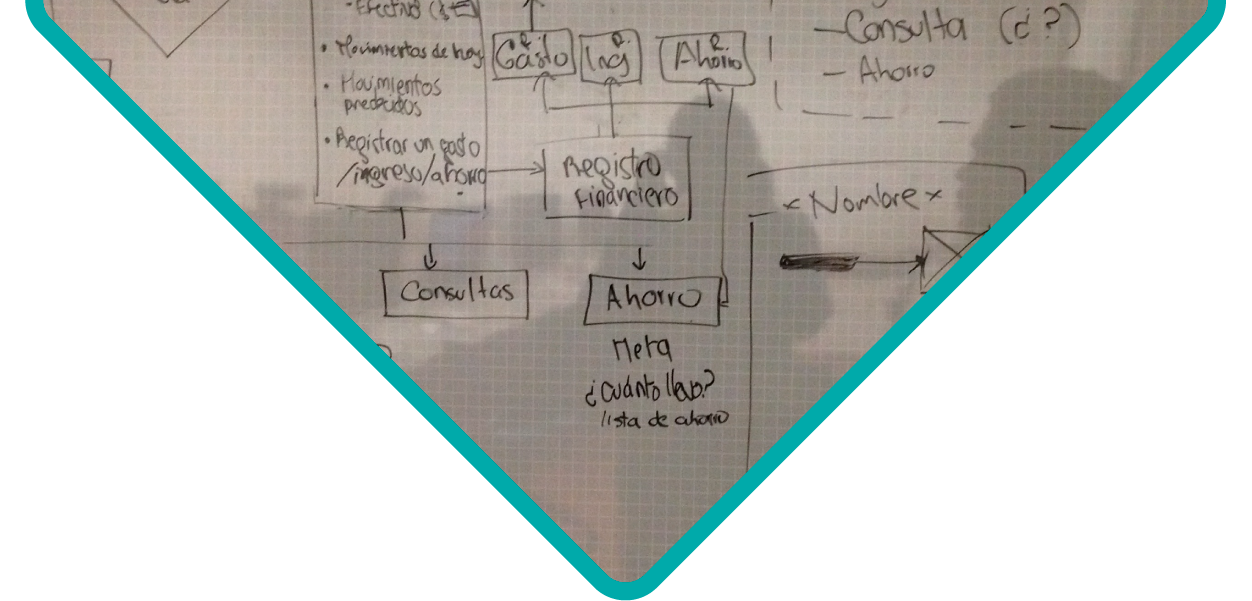 -Efectivo
• Movimientos de hoy
• Movimientos
predecidos
• Registrar un gasto
/ingreso/ahorro
R.
Gasto
R.
Ing
R.
Ahorro
Registro
Financiero
Consultas
Ahorro
Meta
¿Cuánto llevo?
lista de ahorro
-Consulta (¿?)
- Ahorro
<Nombre>